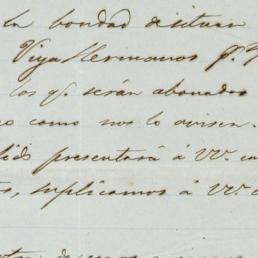 la bondad de situar
Vega Hermanos
los q. serán abonados
como nos lo avisen.
presentará á VV.
suplicamos á VV.